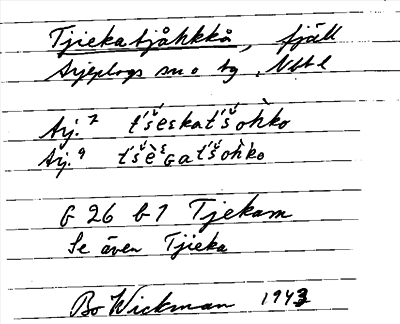 Tjiekatjåhkkå, fjäll
Arjeplogs sn o tg, Nbtl
Arj. 7 t́š́eskat́š́ohko
Arj. 9 t́š́èᴳat́š́ohko
G 26 b 1 Tjekam
Se även Tjieka
Bo Wickman 1943